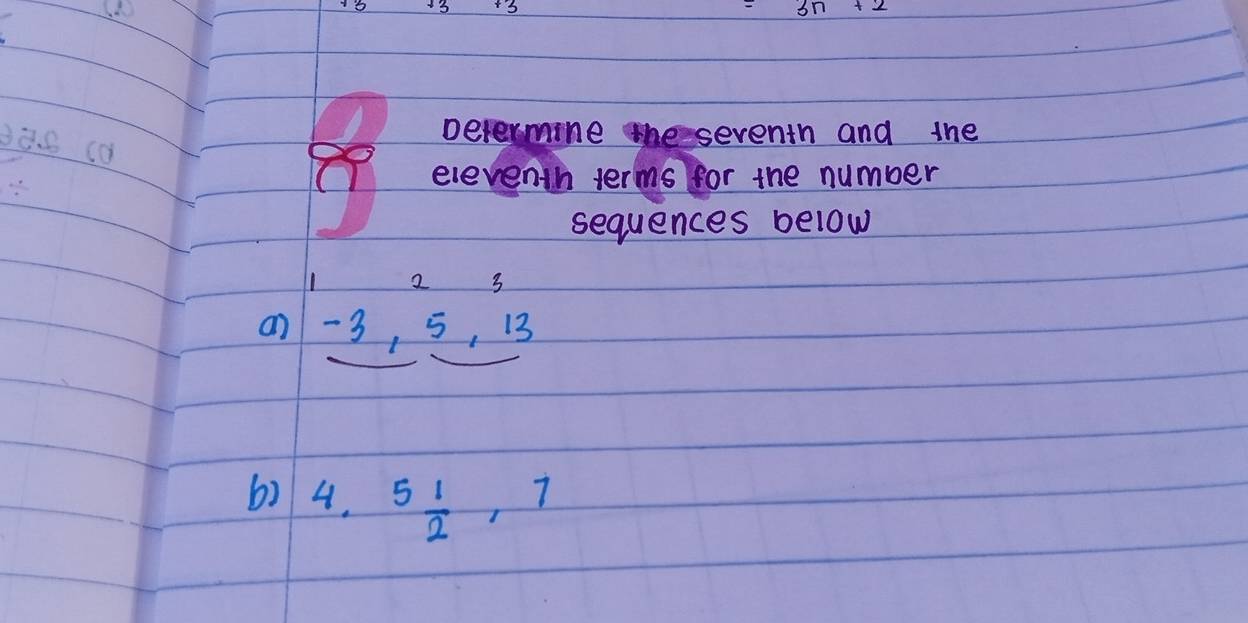 +3 +3 +3 = 3n + 2
Determine the seventh and the
eleventh terms for the number
sequences below
1 2 3
a) -3, 5, 13
b) 4. 5 1/2, 7